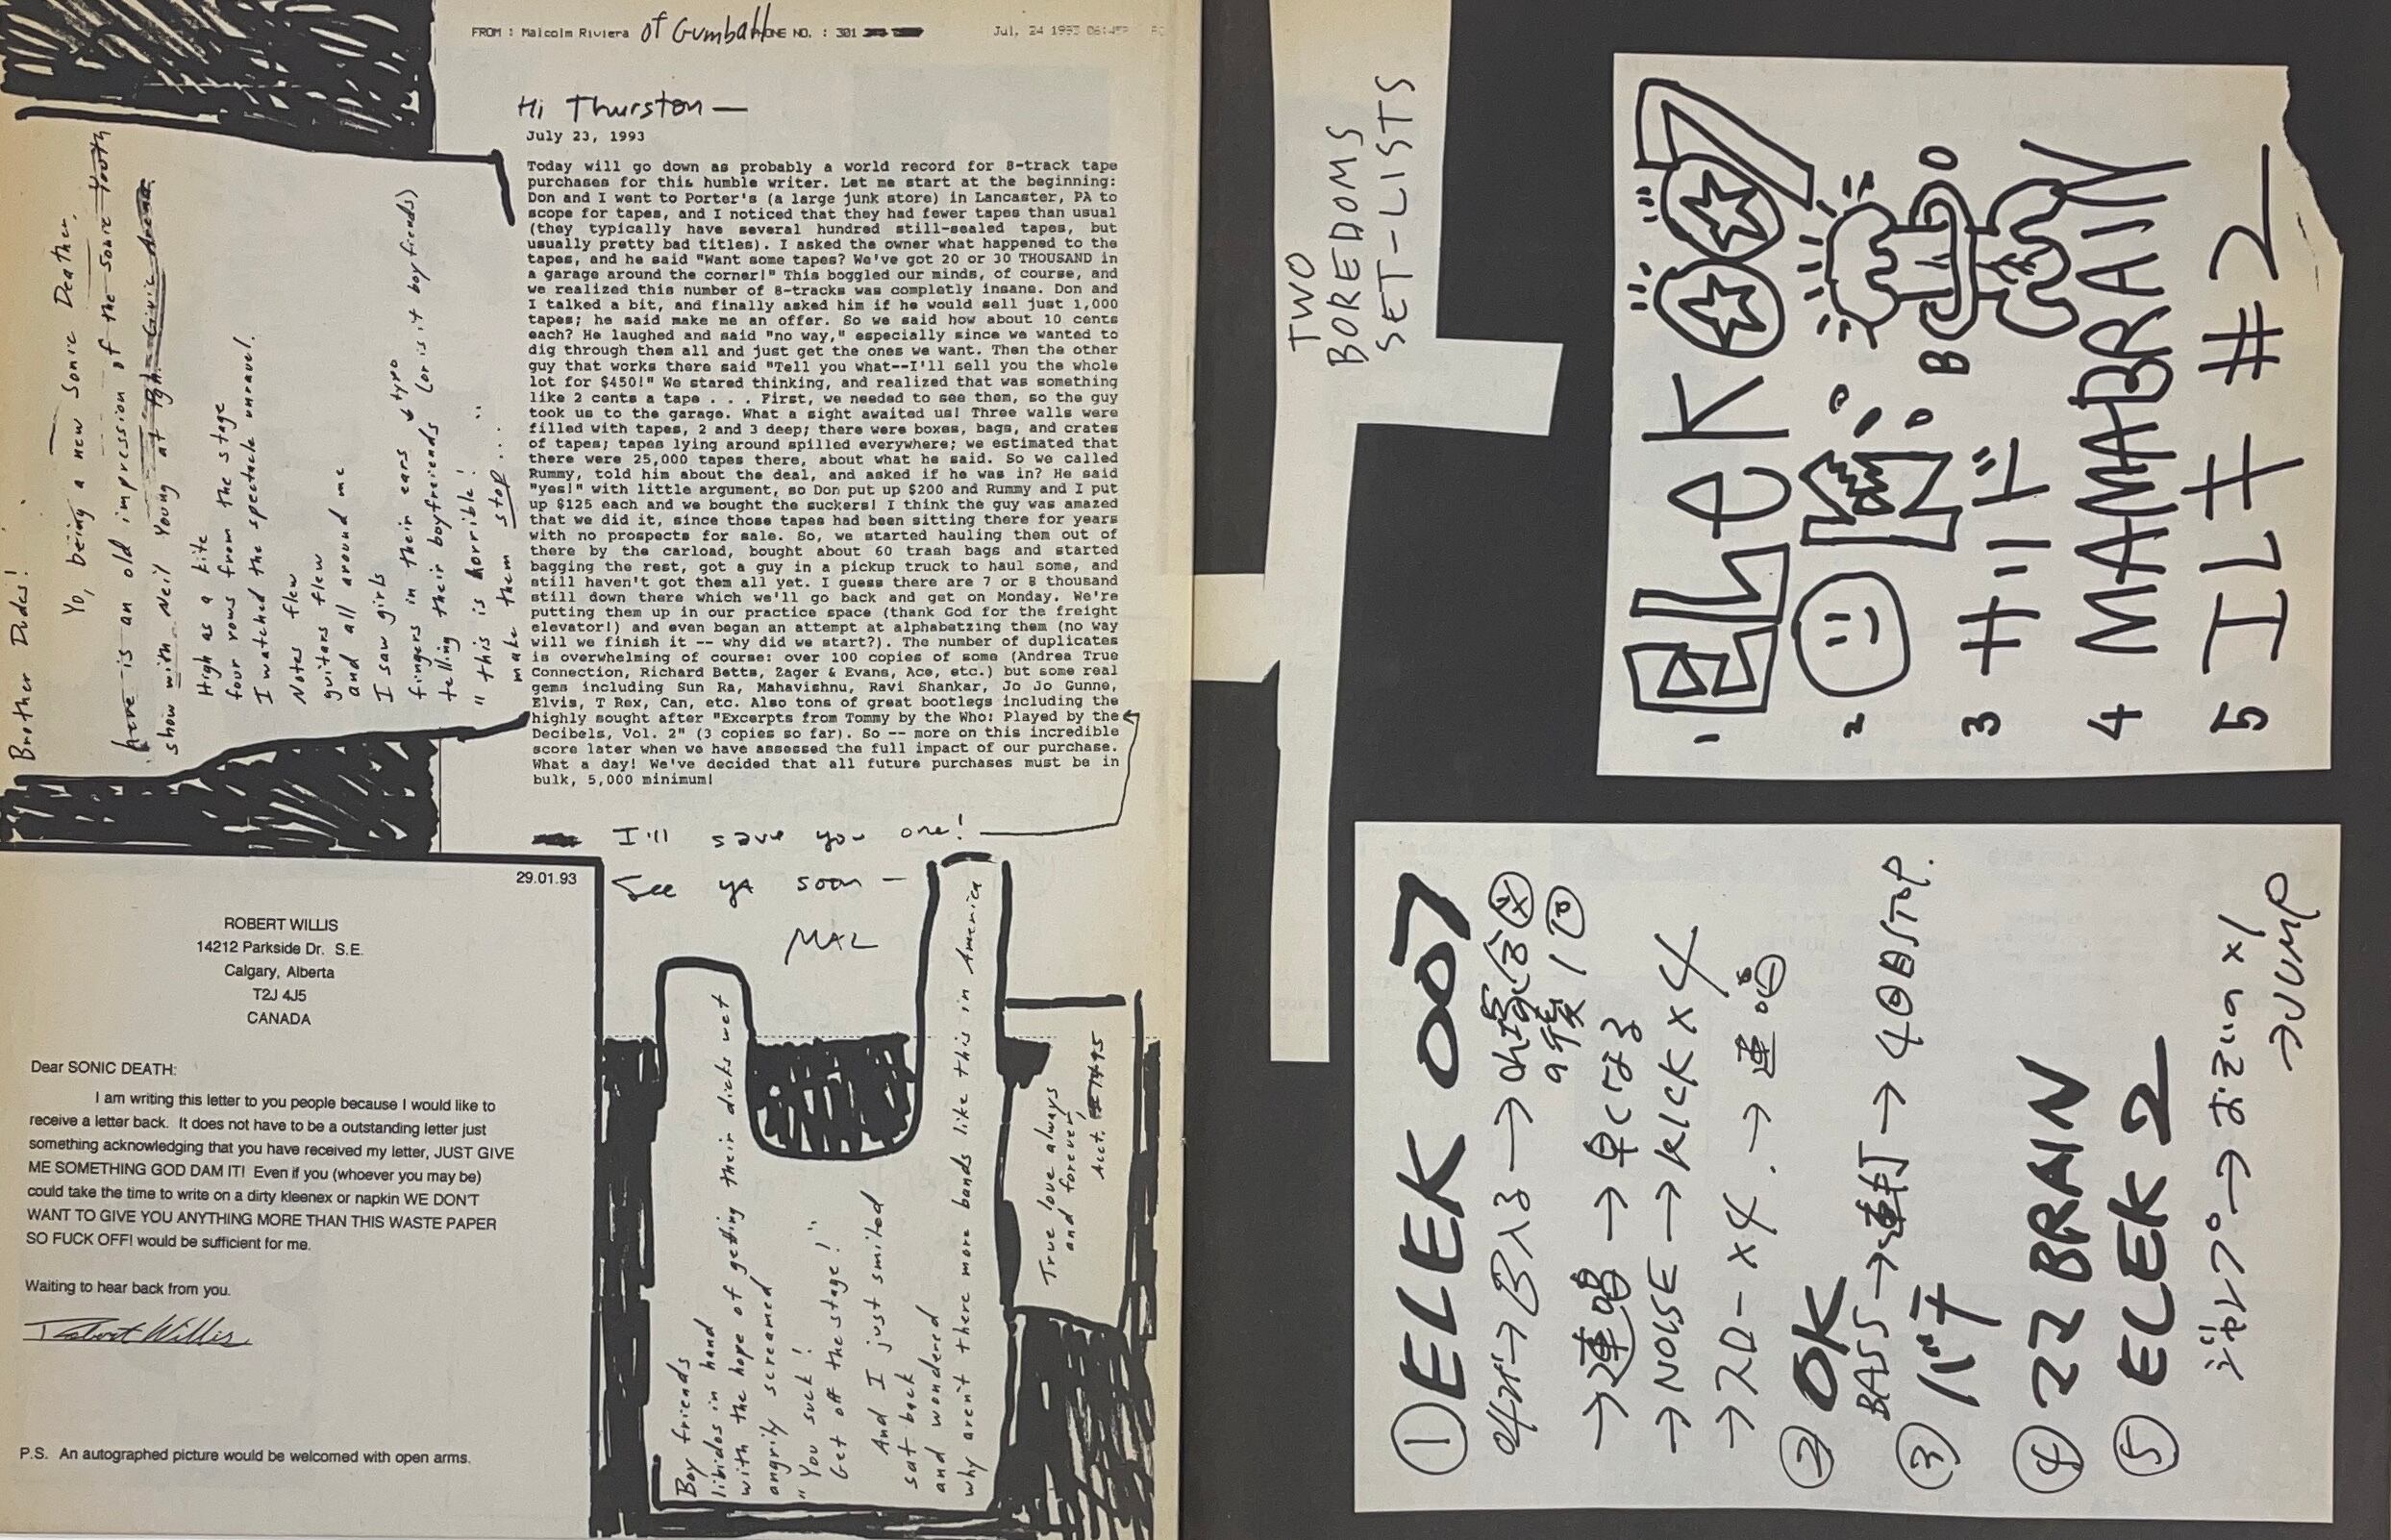 FROM : Malcolm Riviera of Gumball PHONE NO. : 301
Jul. 24 1993 06:45P
Hi Thurston —
July 23, 1993
Today will go down as probably a world record for 8-track tape
purchases for this humble writer. Let me start at the beginning:
Don and I went to Porter's (a large junk store) in Lancaster, PA to
scope for tapes, and I noticed that they had fewer tapes than usual
(they typically have several hundred still-sealed tapes, but
usually pretty bad titles). I asked the owner what happened to the
tapes, and he said "Want some tapes? We've got 20 or 30 THOUSAND in
a garage around the corner!" This boggled our minds, of course, and
we realized this number of 8-tracks was completly insane. Don and
I talked a bit, and finally asked him if he would sell just 1,000
tapes; he said make me an offer. So we said how about 10 cents
each? He laughed and said "no way," especially since we wanted to
dig through them all and just get the ones we want. Then the other
guy that works there said "Tell you what--I'll sell you the whole
lot for $450!" We stared thinking, and realized that was something
like 2 cents a tape . . . First, we needed to see them, so the guy
took us to the garage. What a sight awaited us! Three walls were
filled with tapes, 2 and 3 deep; there were boxes, bags, and crates
of tapes; tapes lying around spilled everywhere; we estimated that
there were 25,000 tapes there, about what he said. So we called
Rummy, told him about the deal, and asked if he was in? He said
"yes!" with little argument, so Don put up $200 and Rummy and I put
up $125 each and we bought the suckers! I think the guy was amazed
that we did it, since those tapes had been sitting there for years
with no prospects for sale. So, we started hauling them out of
there by the carload, bought about 60 trash bags and started
bagging the rest, got a guy in a pickup truck to haul some, and
still haven't got them all yet. I guess there are 7 or 8 thousand
still down there which we'll go back and get on Monday. We're
putting them up in our practice space (thank God for the freight
elevator!) and even began an attempt at alphabetzing them (no way
will we finish it -- why did we start?). The number of duplicates
is overwhelming of course: over 100 copies of some (Andrea True
Connection, Richard Betts, Zager & Evans, Ace, etc.) but some real
gems including Sun Ra, Mahavishnu, Ravi Shankar, Jo Jo Gunne,
Elvis, T Rex, Can, etc. Also tons of great bootlegs including the
highly sought after "Excerpts from Tommy by the Who: Played by the
Decibels, Vol. 2" (3 copies so far). So -- more on this incredible
score later when we have assessed the full impact of our purchase.
What a day! We've decided that all future purchases must be in
bulk, 5,000 minimum!
I'll save you one!
See ya soon —
MAL
Brother Dudes!
Yo, being a new Sonic Death,
here is an old impression of the Sonic Youth
show with Neil Young at Pgh. Civic Arena.
High as a kite
four rows from the stage
I watched the spectacle unravel.
Notes flew
guitars flew
and all around me
I saw girls
fingers in their ears typo
telling their boyfreiends (or is it boyfiends)
"this is horrible!
make them stop...
Boy friends
libidos in hand
with the hope of getting their dicks wet
angrily screamed
"You suck!
Get off the stage!"
And I just smiled
sat back
and wondered
why aren't there more bands like this in America
True love always
and forever,
Acct. 7495
29.01.93
ROBERT WILLIS
14212 Parkside Dr. S.E.
Calgary, Alberta
T2J 4J5
CANADA
Dear SONIC DEATH:
I am writing this letter to you people because I would like to
receive a letter back. It does not have to be a outstanding letter just
something acknowledging that you have received my letter, JUST GIVE
ME SOMETHING GOD DAM IT! Even if you (whoever you may be)
could take the time to write on a dirty kleenex or napkin WE DON'T
WANT TO GIVE YOU ANYTHING MORE THAN THIS WASTE PAPER
SO FUCK OFF! would be sufficient for me.
Waiting to hear back from you.
Robert Willis
P.S. An autographed picture would be welcomed with open arms.
TWO
BOREDOMS
SET-LISTS
1 ELeK 007
2
B O
3 キリド
4 MAMABRAIN
5 エレキ #2
① ELEK 007
→ B入る →
→ 連唱 → 早くなる
→ NOISE → KICK x 4
→ スロー x 4. → 連唱
② OK
BASS → 連打 → 4回目STOP.
③ バキ
④ ママ BRAIN
⑤ ELEK 2
ジャンプ° → x1
→ JUMP